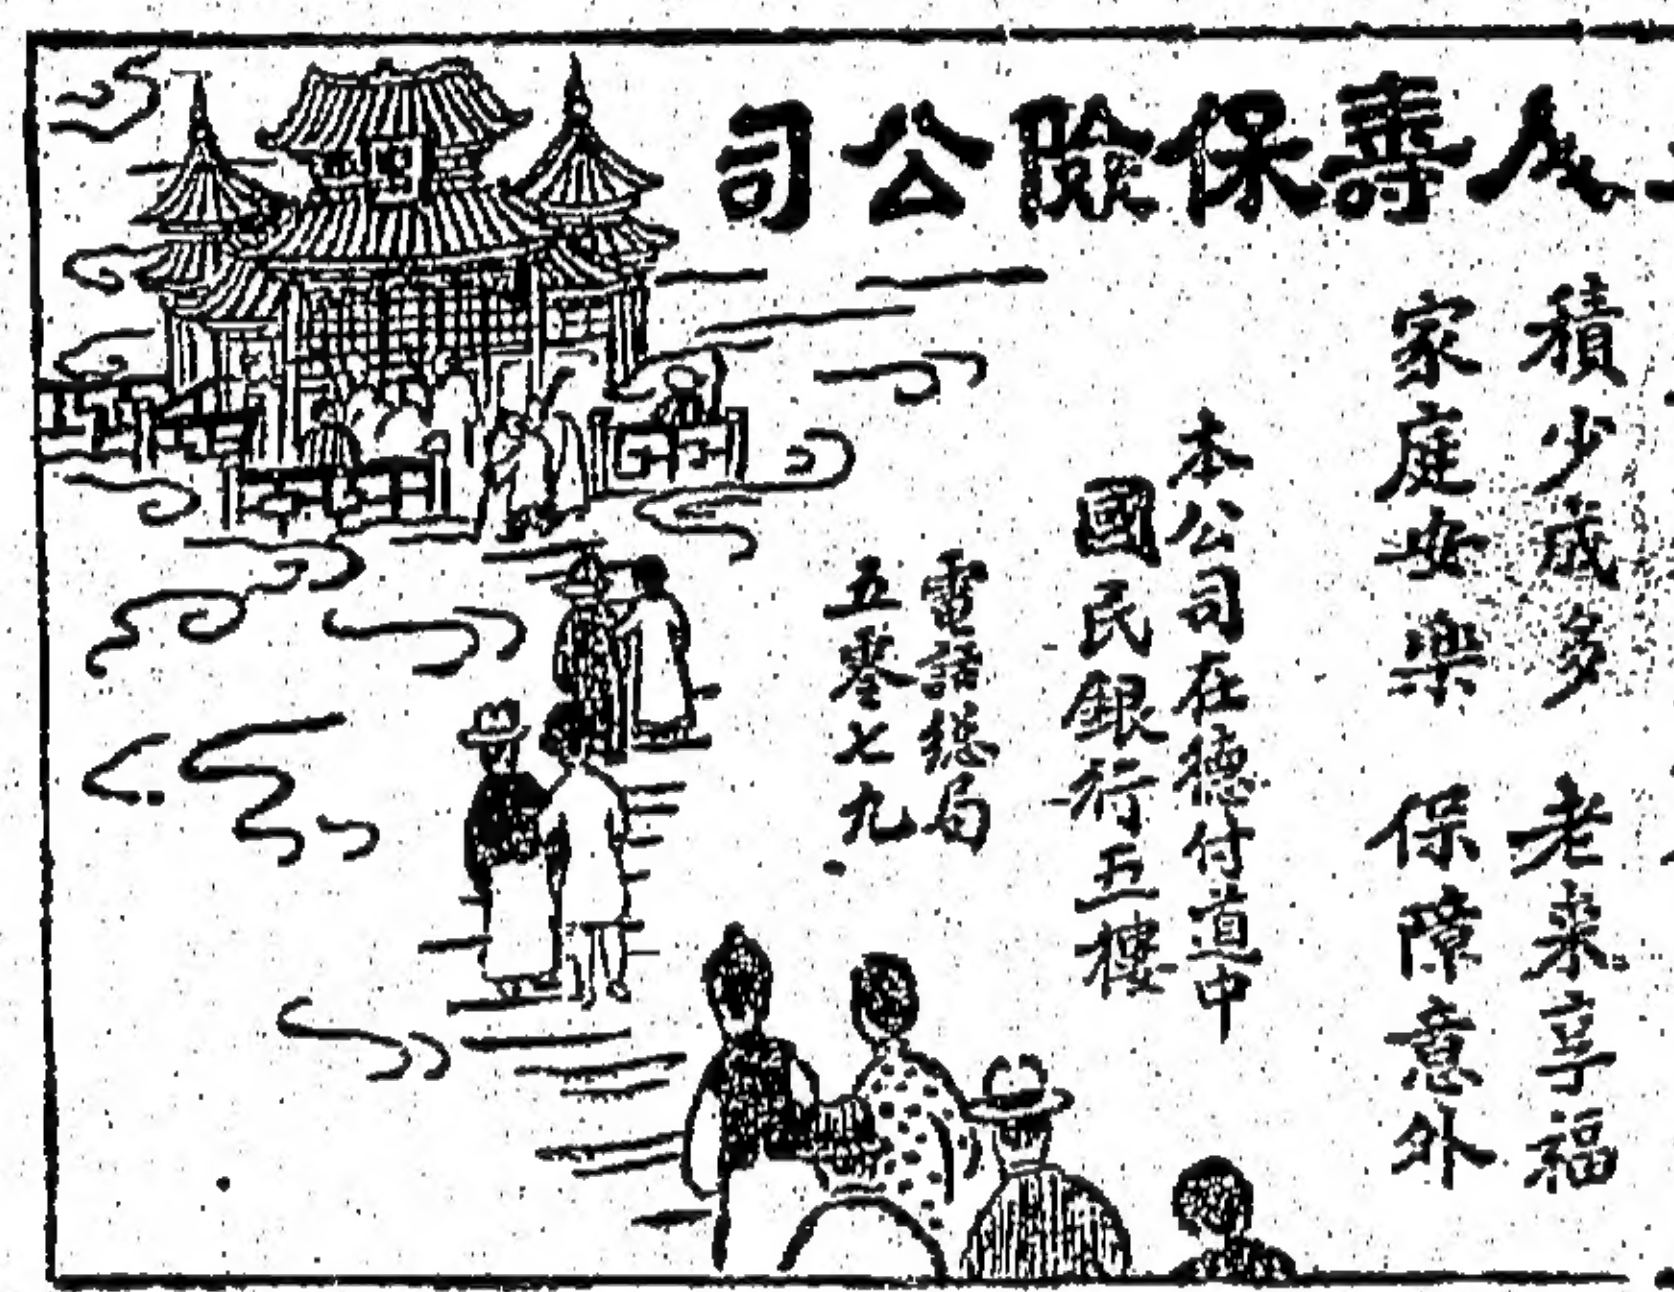 人壽保險公司
積少成多　老来享福
家庭安樂　保障意外
本公司在德付道中
國民銀行五樓
電話總局
五零七九